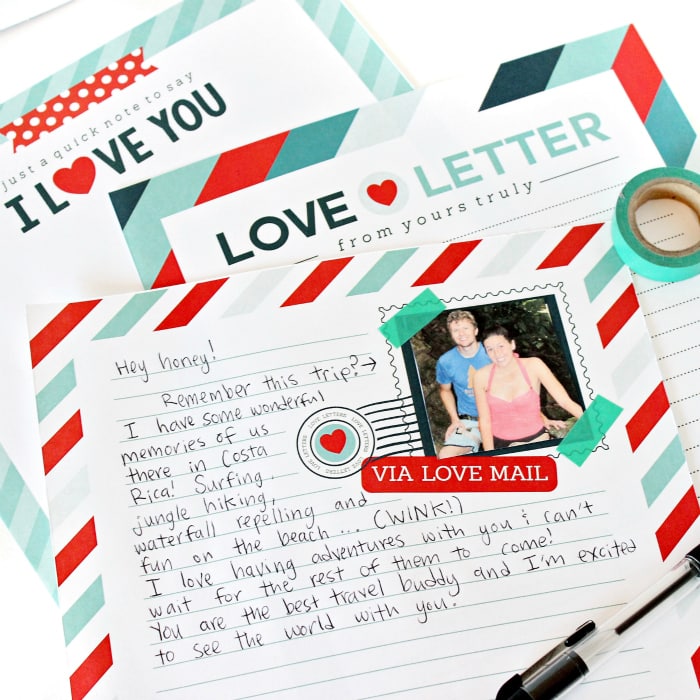 just a quick note to say
I LOVE YOU
LOVE LETTER
from yours truly
Hey honey!
Remember this trip?→
I have some wonderful
memories of us
there in Costa
Rica! Surfing,
jungle hiking,
waterfall repelling and
fun on the beach... (WINK!)
I love having adventures with you & can't
wait for the rest of them to come!
You are the best travel buddy and I'm excited
to see the world with you.
LOVE LETTERS LOVE LETTERS LOVE LETTERS
VIA LOVE MAIL